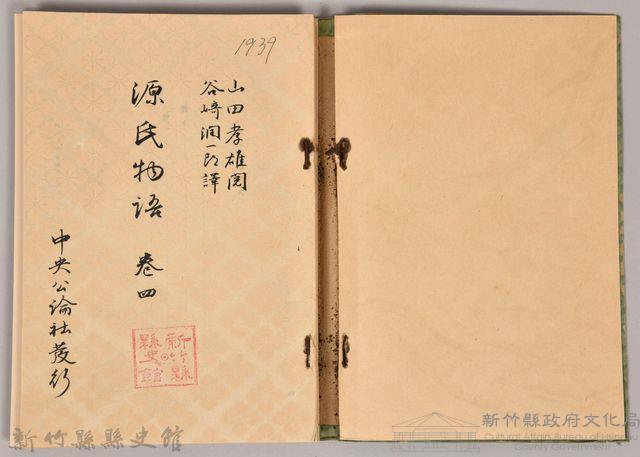 1939
山田孝雄閲
谷崎潤一郎譯
源氏物语 卷四
中央公論社發行
新竹縣
縣史館
新竹縣縣史館
新竹縣政府文化局
Cultural Affairs Bureau of Hsinchu
County Government